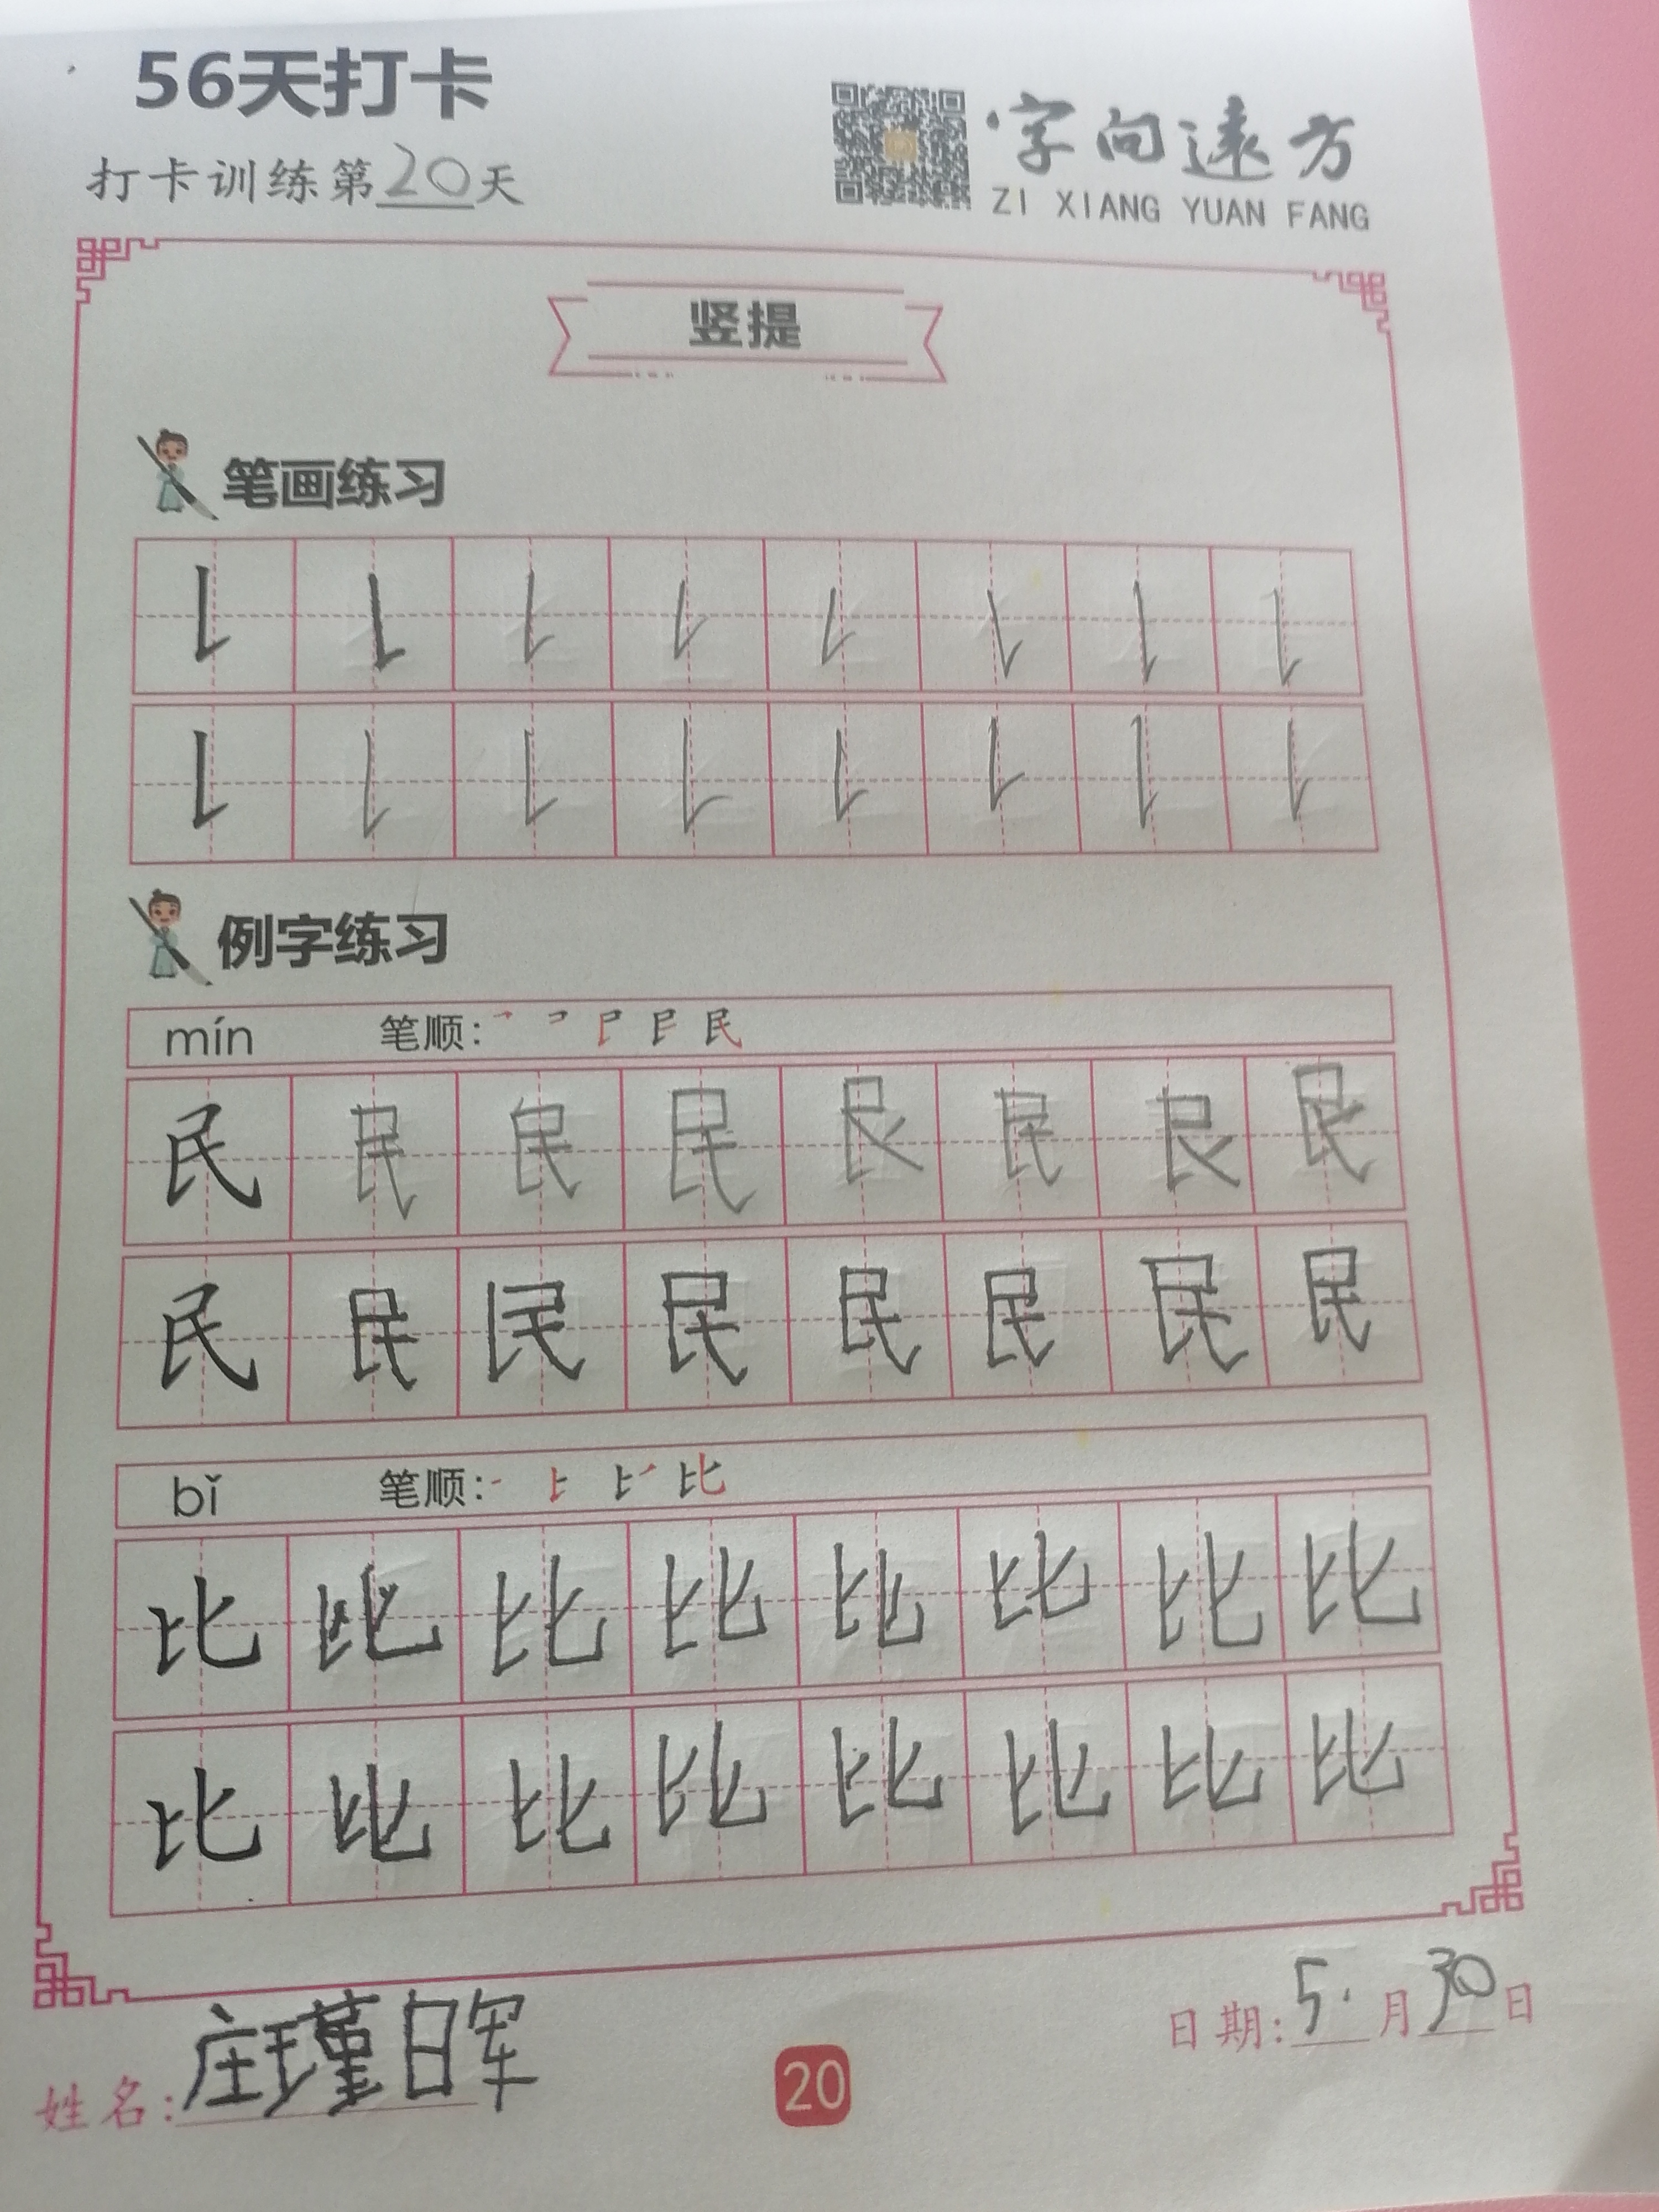 56天打卡
打卡训练第20天
字向远方
ZI XIANG YUAN FANG
竖提
笔画练习
例字练习
mín 笔顺:
民 民 民 民 民 民 民 民
民 民 民 民 民 民 民 民
bǐ 笔顺:
比 比 比 比 比 比 比 比
比 比 比 比 比 比 比 比
姓名:庄瑾晖
日期:5月30日
20